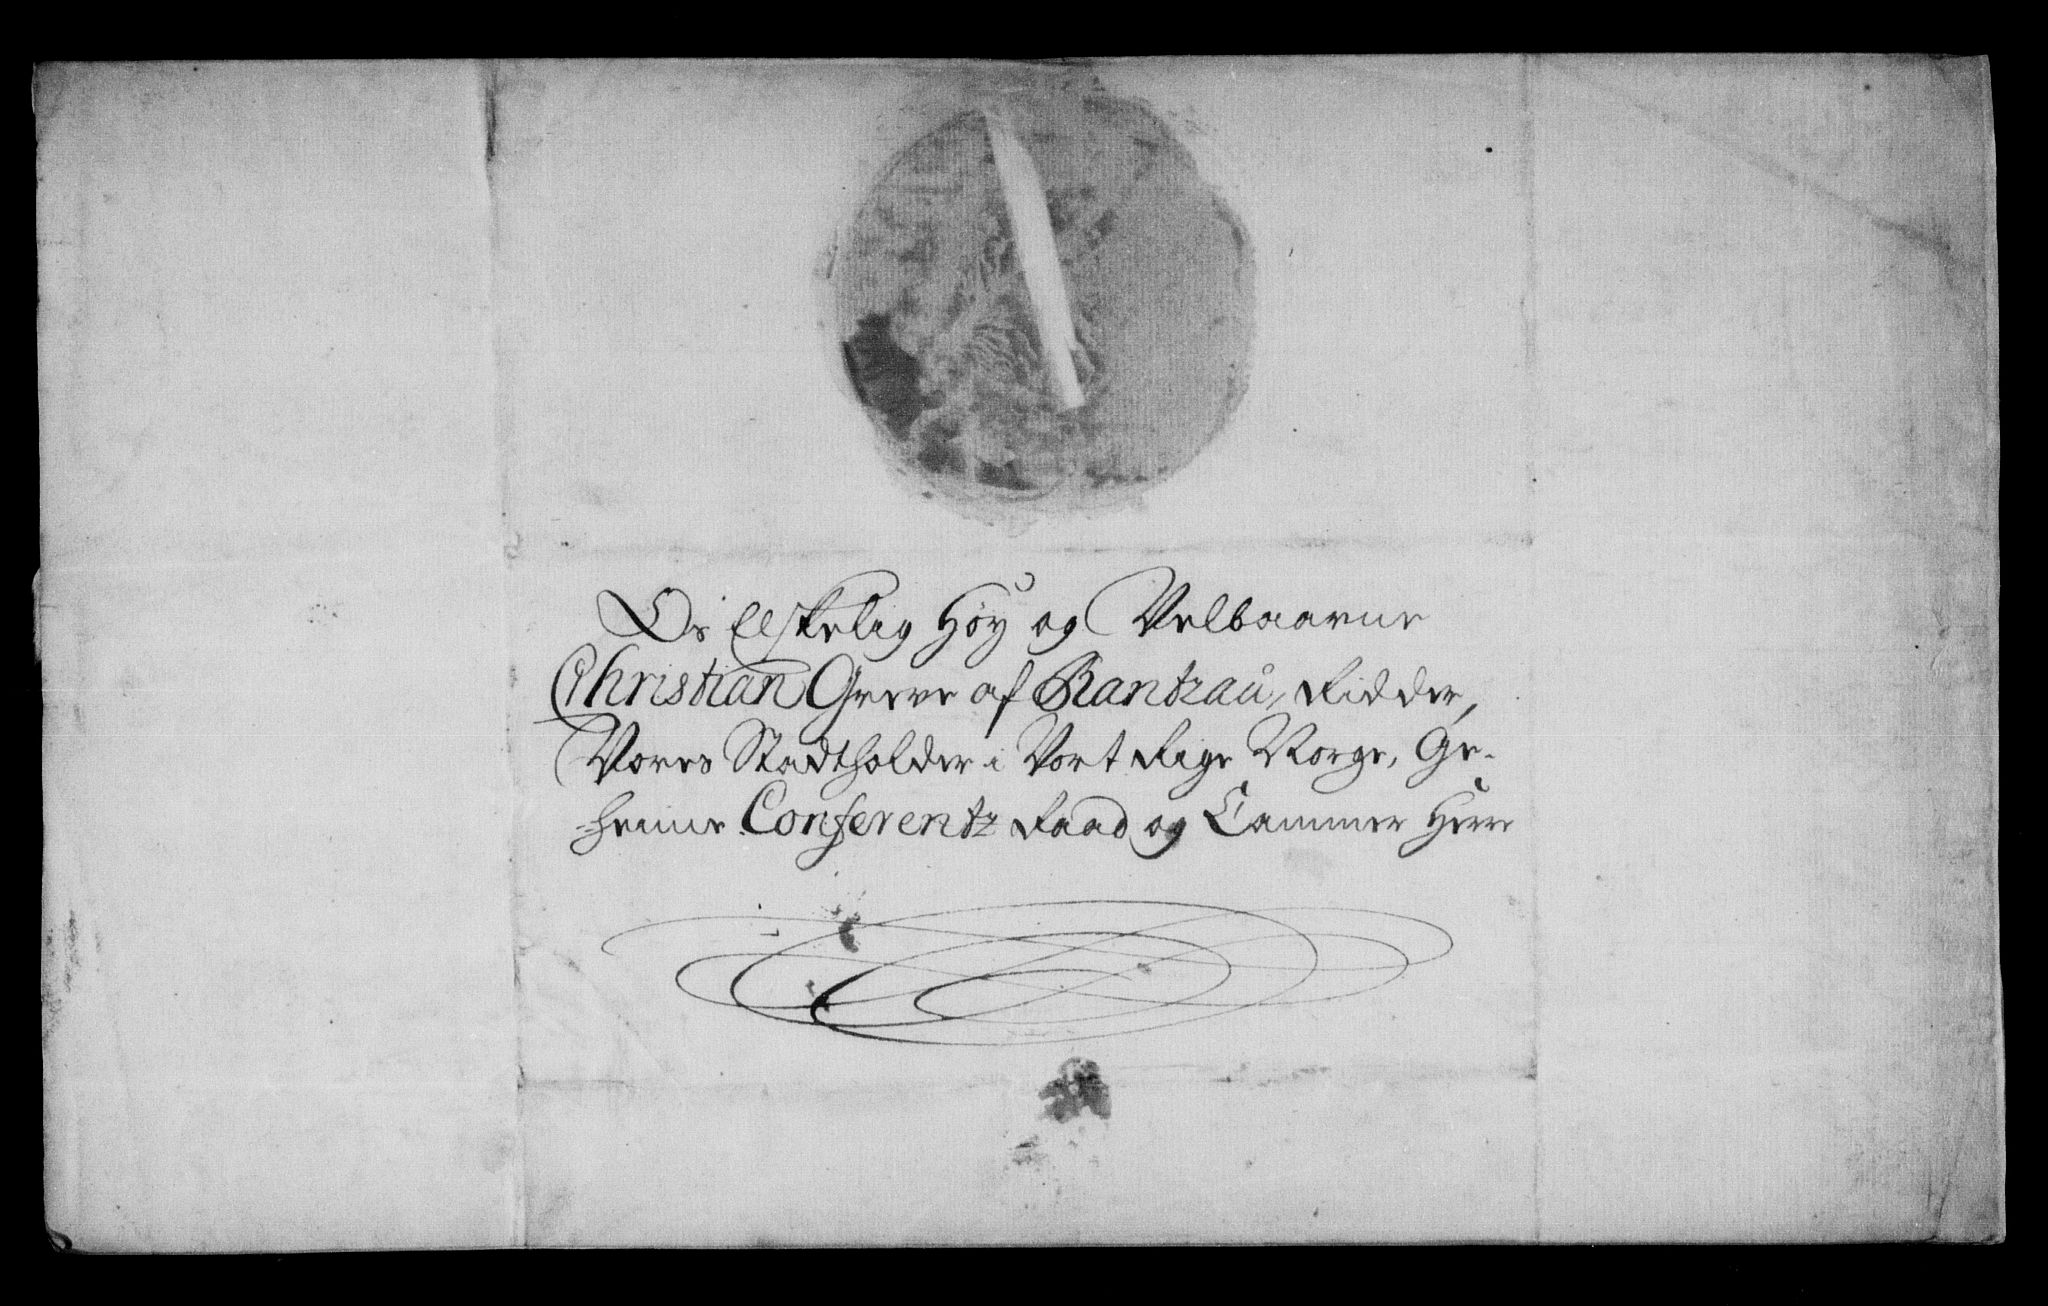 Os Elskelig Høy og Velbaarne
Christian Greve af Rantzau, Ridder,
Vores Stadtholder i Vort Rige Norge, Ge-
heime Conferentz Raad og Cammer Herre